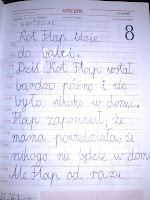 STYCZEŃ
8
Kot Płap idzie
do babci.
Dziś Kot Płap wstał
bardzo późno i nie
było nikogo w domu.
Płap zapomniał, że
mama powiedziała, że
nikogo nie będzie w domu
Ale Płap od razu